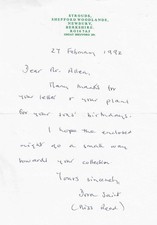 STROUDS,
SHEFFORD WOODLANDS,
NEWBURY,
BERKSHIRE.
27 February 1992
Dear Mr. Allen,
Many thanks for
your letter & your plans
for your sons' birthdays.
I hope the enclosed
might go a small way
towards your collection
Yours sincerely
Dora Saint
(Miss Read)